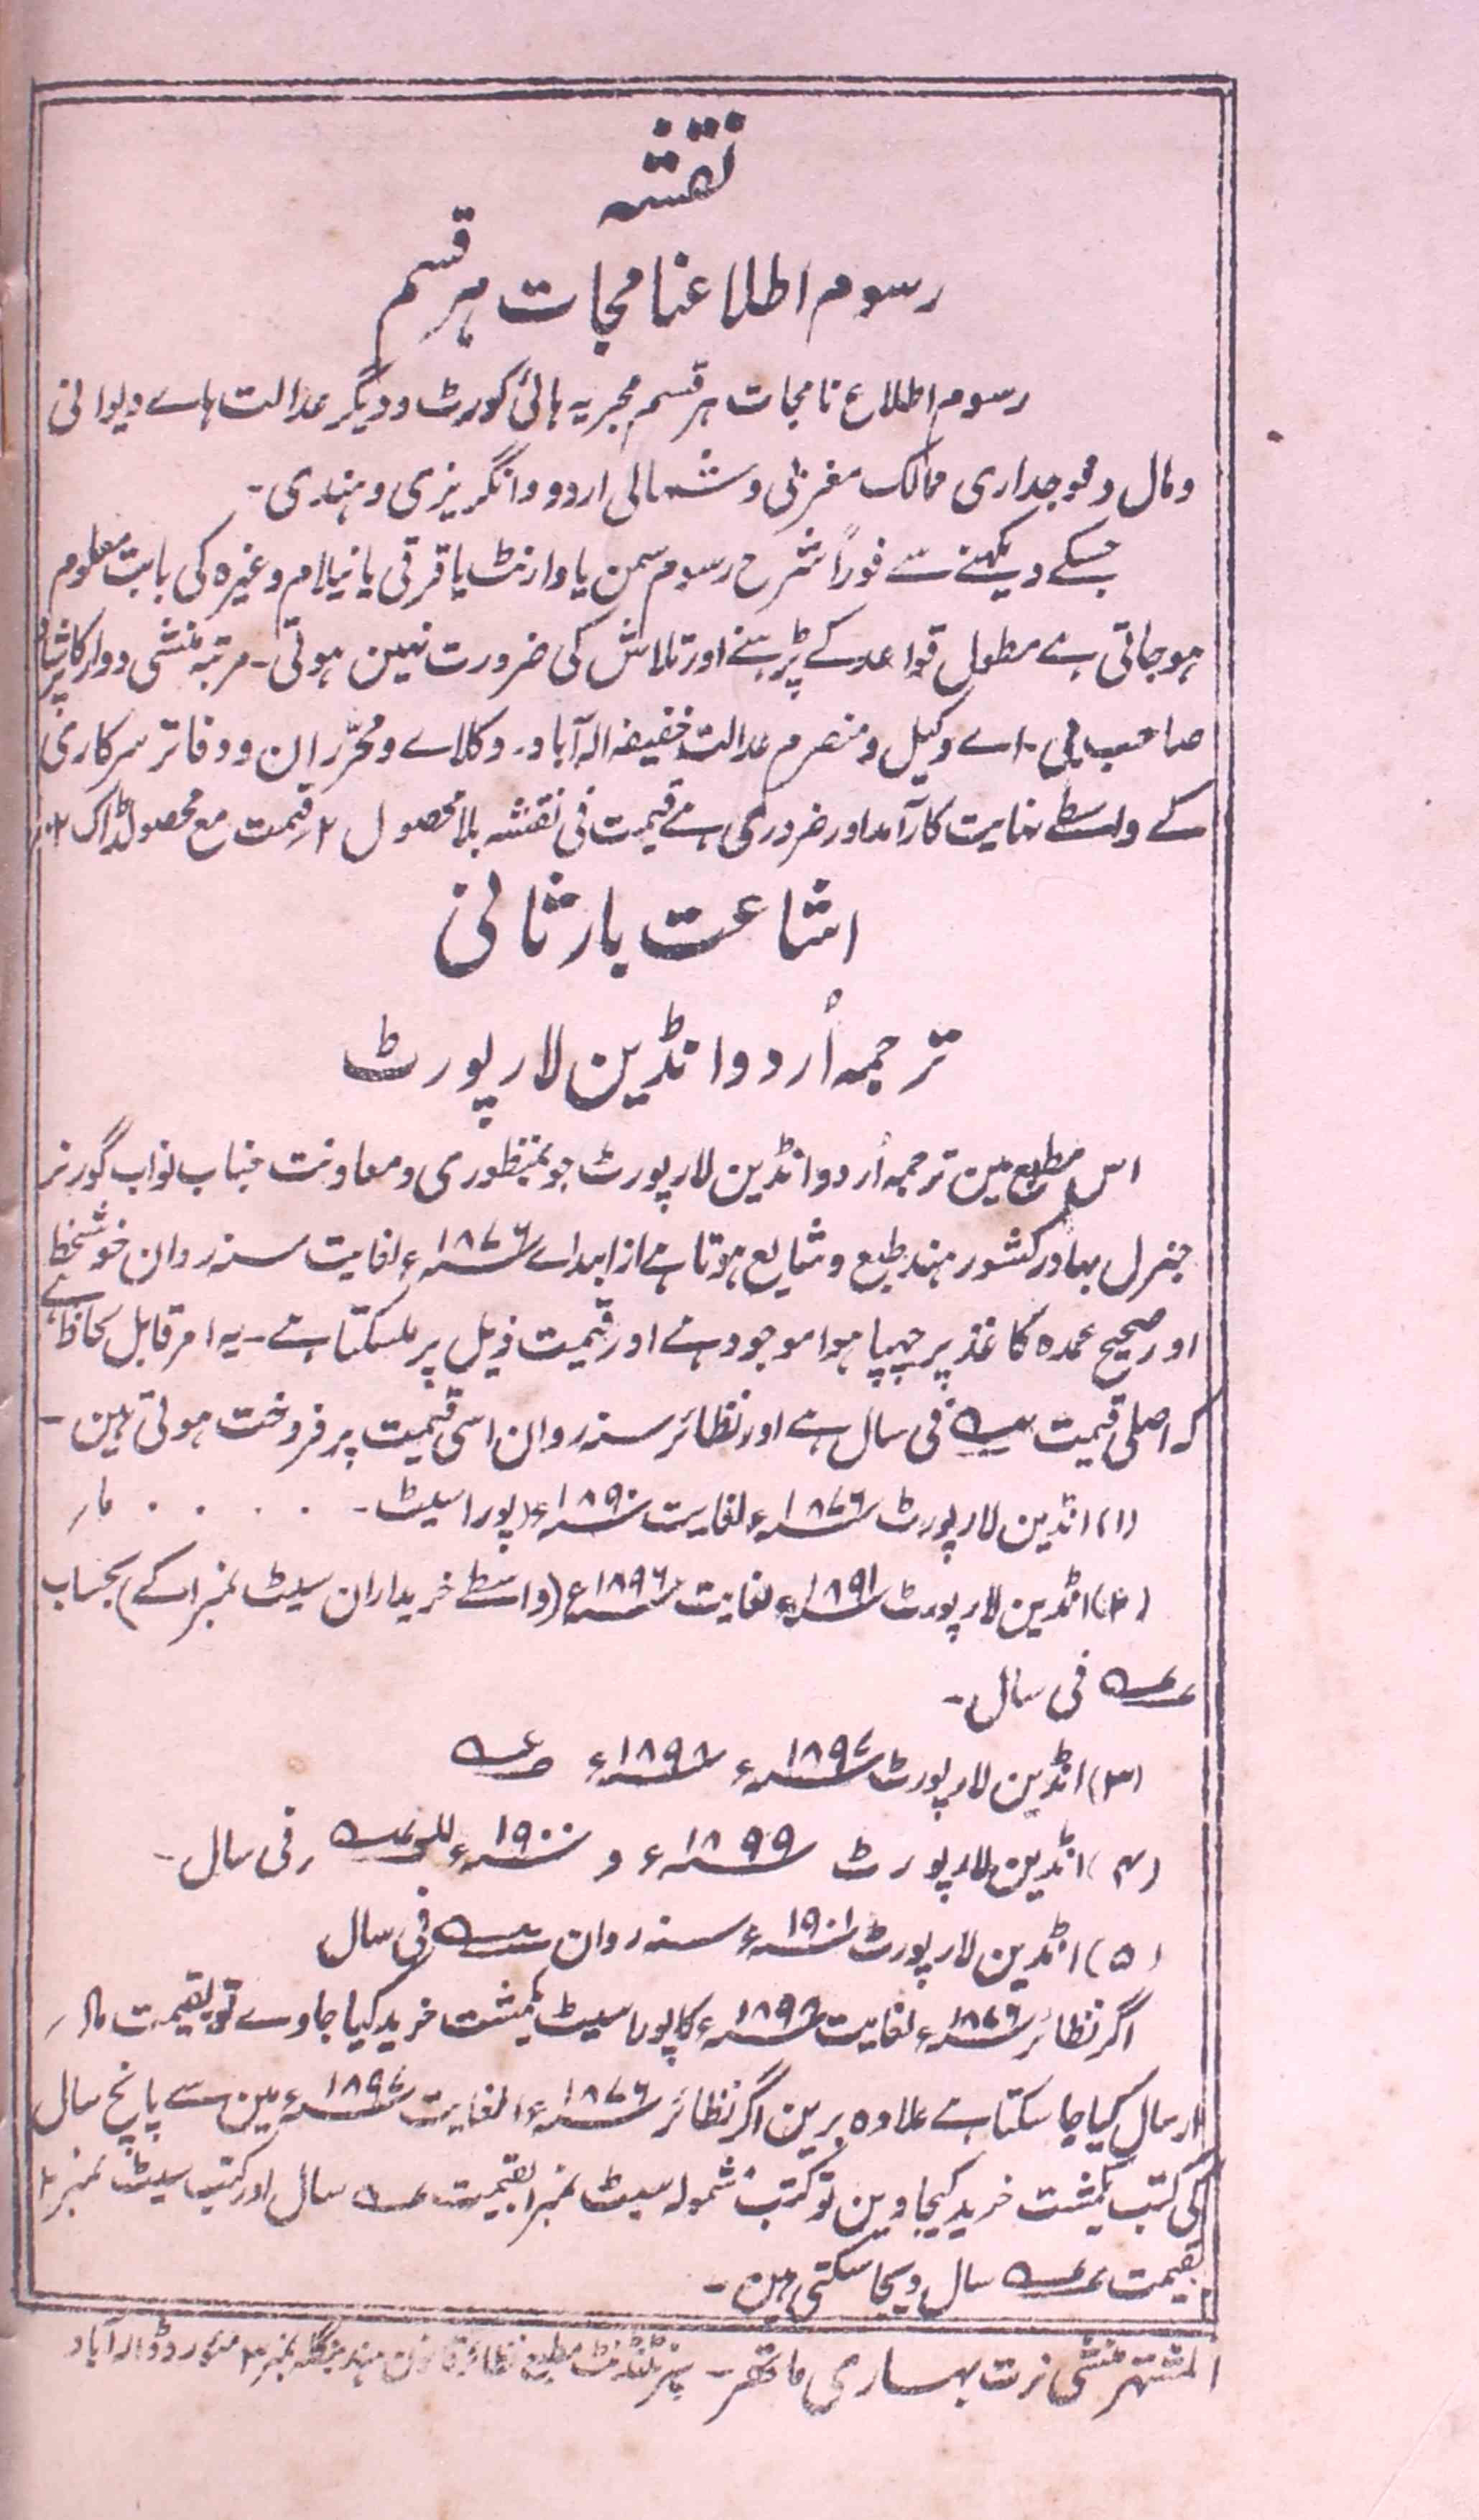 نقشہ
رسوم اطلاعنامجات ہر قسم
رسوم اطلاع نامجات ہر قسم مجریہ ہائی کورٹ و دیگر عدالت ہاے دیوانی
و مال و فوجداری ممالک مغربی و شمالی اردو و انگریزی و ہندی۔
جسکے دیکھنے سے فوراً شرح رسوم سمن یا وارنٹ یا قرقی یا نیلام وغیرہ کی بابت معلوم
ہو جاتی ہے مطول قواعد کے پڑہنے اور تلاش کی ضرورت نہین ہوتی۔ مرتبہ منشی دوارکا پرشاد
صاحب بی۔ اے وکیل و منصرم عدالت خفیفہ الہ آباد۔ وکلاے و محرّران و دفاتر سرکاری
کے واسطے نہایت کارآمد اور ضروری ہے قیمت فی نقشہ بلا محصول ۲؍ قیمت مع محصولڈاک
اشاعت بار ثانی
ترجمہ اُردو انڈین لا رپورٹ
اس مطبع مین ترجمہ اُردو انڈین لا رپورٹ جو بمنظوری و معاونت جناب نواب گورنر
جنرل بہادر کشور ہند طبع و شایع ہوتا ہے از ابتداے ۱۸۷۶ء لغایت سنہ روان خوشخط
اور صحیح عمدہ کاغذ پر چھپا ہوا موجود ہے اور قیمت ذیل پر ملسکتا ہے۔ یہ امر قابل لحاظ ہے
کہ اصلی قیمت فی سال ہے اور نظائر سنہ روان اسی قیمت پر فروخت ہوتی ہین۔
(۱) انڈین لا رپورٹ ۱۸۷۶ء لغایت ۱۸۹۰ء (پورا سیٹ۔ . . . .
(۲) انڈین لا رپورٹ ۱۸۹۱ء لغایت ۱۸۹۶ء (واسطے خریداران سیٹ نمبر ۱ کے) بحساب
فی سال۔
(۳) انڈین لا رپورٹ ۱۸۹۷ء ۱۸۹۸ء
(۴) انڈین لا رپورٹ ۱۸۹۹ء و ۱۹۰۰ء فی سال۔
(۵) انڈین لا رپورٹ ۱۹۰۱ء سنہ روان فی سال
اگر نظائر ۱۸۷۶ء لغایت ۱۸۹۶ء کا پورا سیٹ یکمشت خرید کیا جاوے تو بقیمت
ارسال کیا جا سکتا ہے علاوہ برین اگر نظائر ۱۸۷۶ء لغایت ۱۸۹۷ء مین سے پانچ سال
کی کتب یکمشت خرید کیجاوین تو کتب مشمولہ سیٹ نمبر ۱ بقیمت سال اور کتب سیٹ نمبر ۲
بقیمت سال دیجا سکتی ہین۔
المشتہر منشی نرت بہاری ماتھر۔ سپرنٹنڈنٹ مطبع نظائر قانون ہند بنگلہ نمبر ۳ میور روڈ الہ آباد